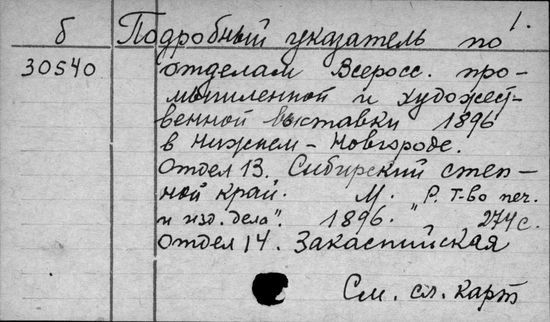 1.
б Подробный указатель по
30540 отделам Всеросс. про-
мышленной и художест-
венной выставки 1896
в Нижнем-Новгороде.
Отдел 13. Сибирский степ-
ной край. М. "Р. Т-во печ.
и изд. дела". 1896. 274 с.
Отдел 14. Закаспийская
См. сл. карт